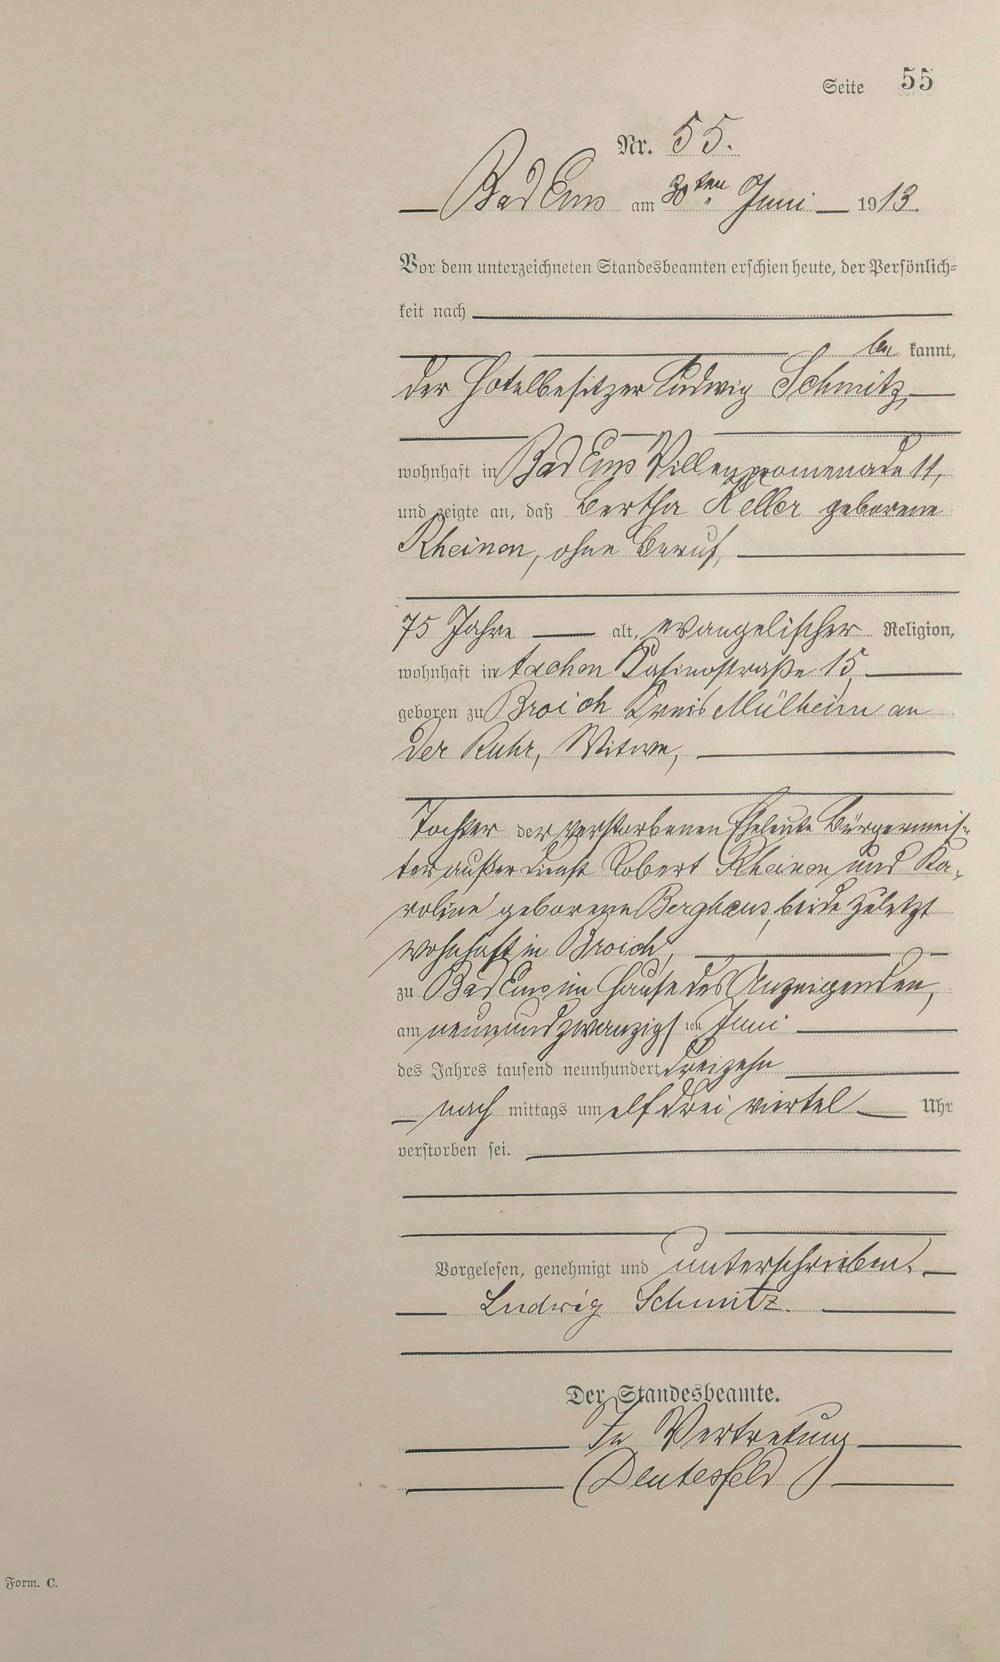 Seite 55
Nr. 55.
Bad Ems am 30ten Juni 1913.
Vor dem unterzeichneten Standesbeamten erschien heute, der Persönlich=
keit nach
be kannt,
der Hotelbesitzer Ludwig Schmitz,
wohnhaft in Bad Ems Villenpromenade 11,
und zeigte an, daß Bertha Keller geborene
Rheinen, ohne Beruf,
75 Jahre alt, evangelischer Religion,
wohnhaft in Aachen Kasinostraße 15,
geboren zu Broich Kreis Mülheim an
der Ruhr, Witwe,
Tochter der verstorbenen Eheleute Bürgermeis-
ter außer Dienst Robert Rheinen und Ka-
roline geborene Berghaus, beide zuletzt
wohnhaft in Broich,
zu Bad Ems im Hause des Anzeigenden,
am neunundzwanzigsten Juni
des Jahres tausend neunhundert dreizehn
nach mittags um elf drei viertel Uhr
verstorben sei.
Vorgelesen, genehmigt und unterschrieben.
Ludwig Schmitz.
Der Standesbeamte.
In Vertretung
Form. C.